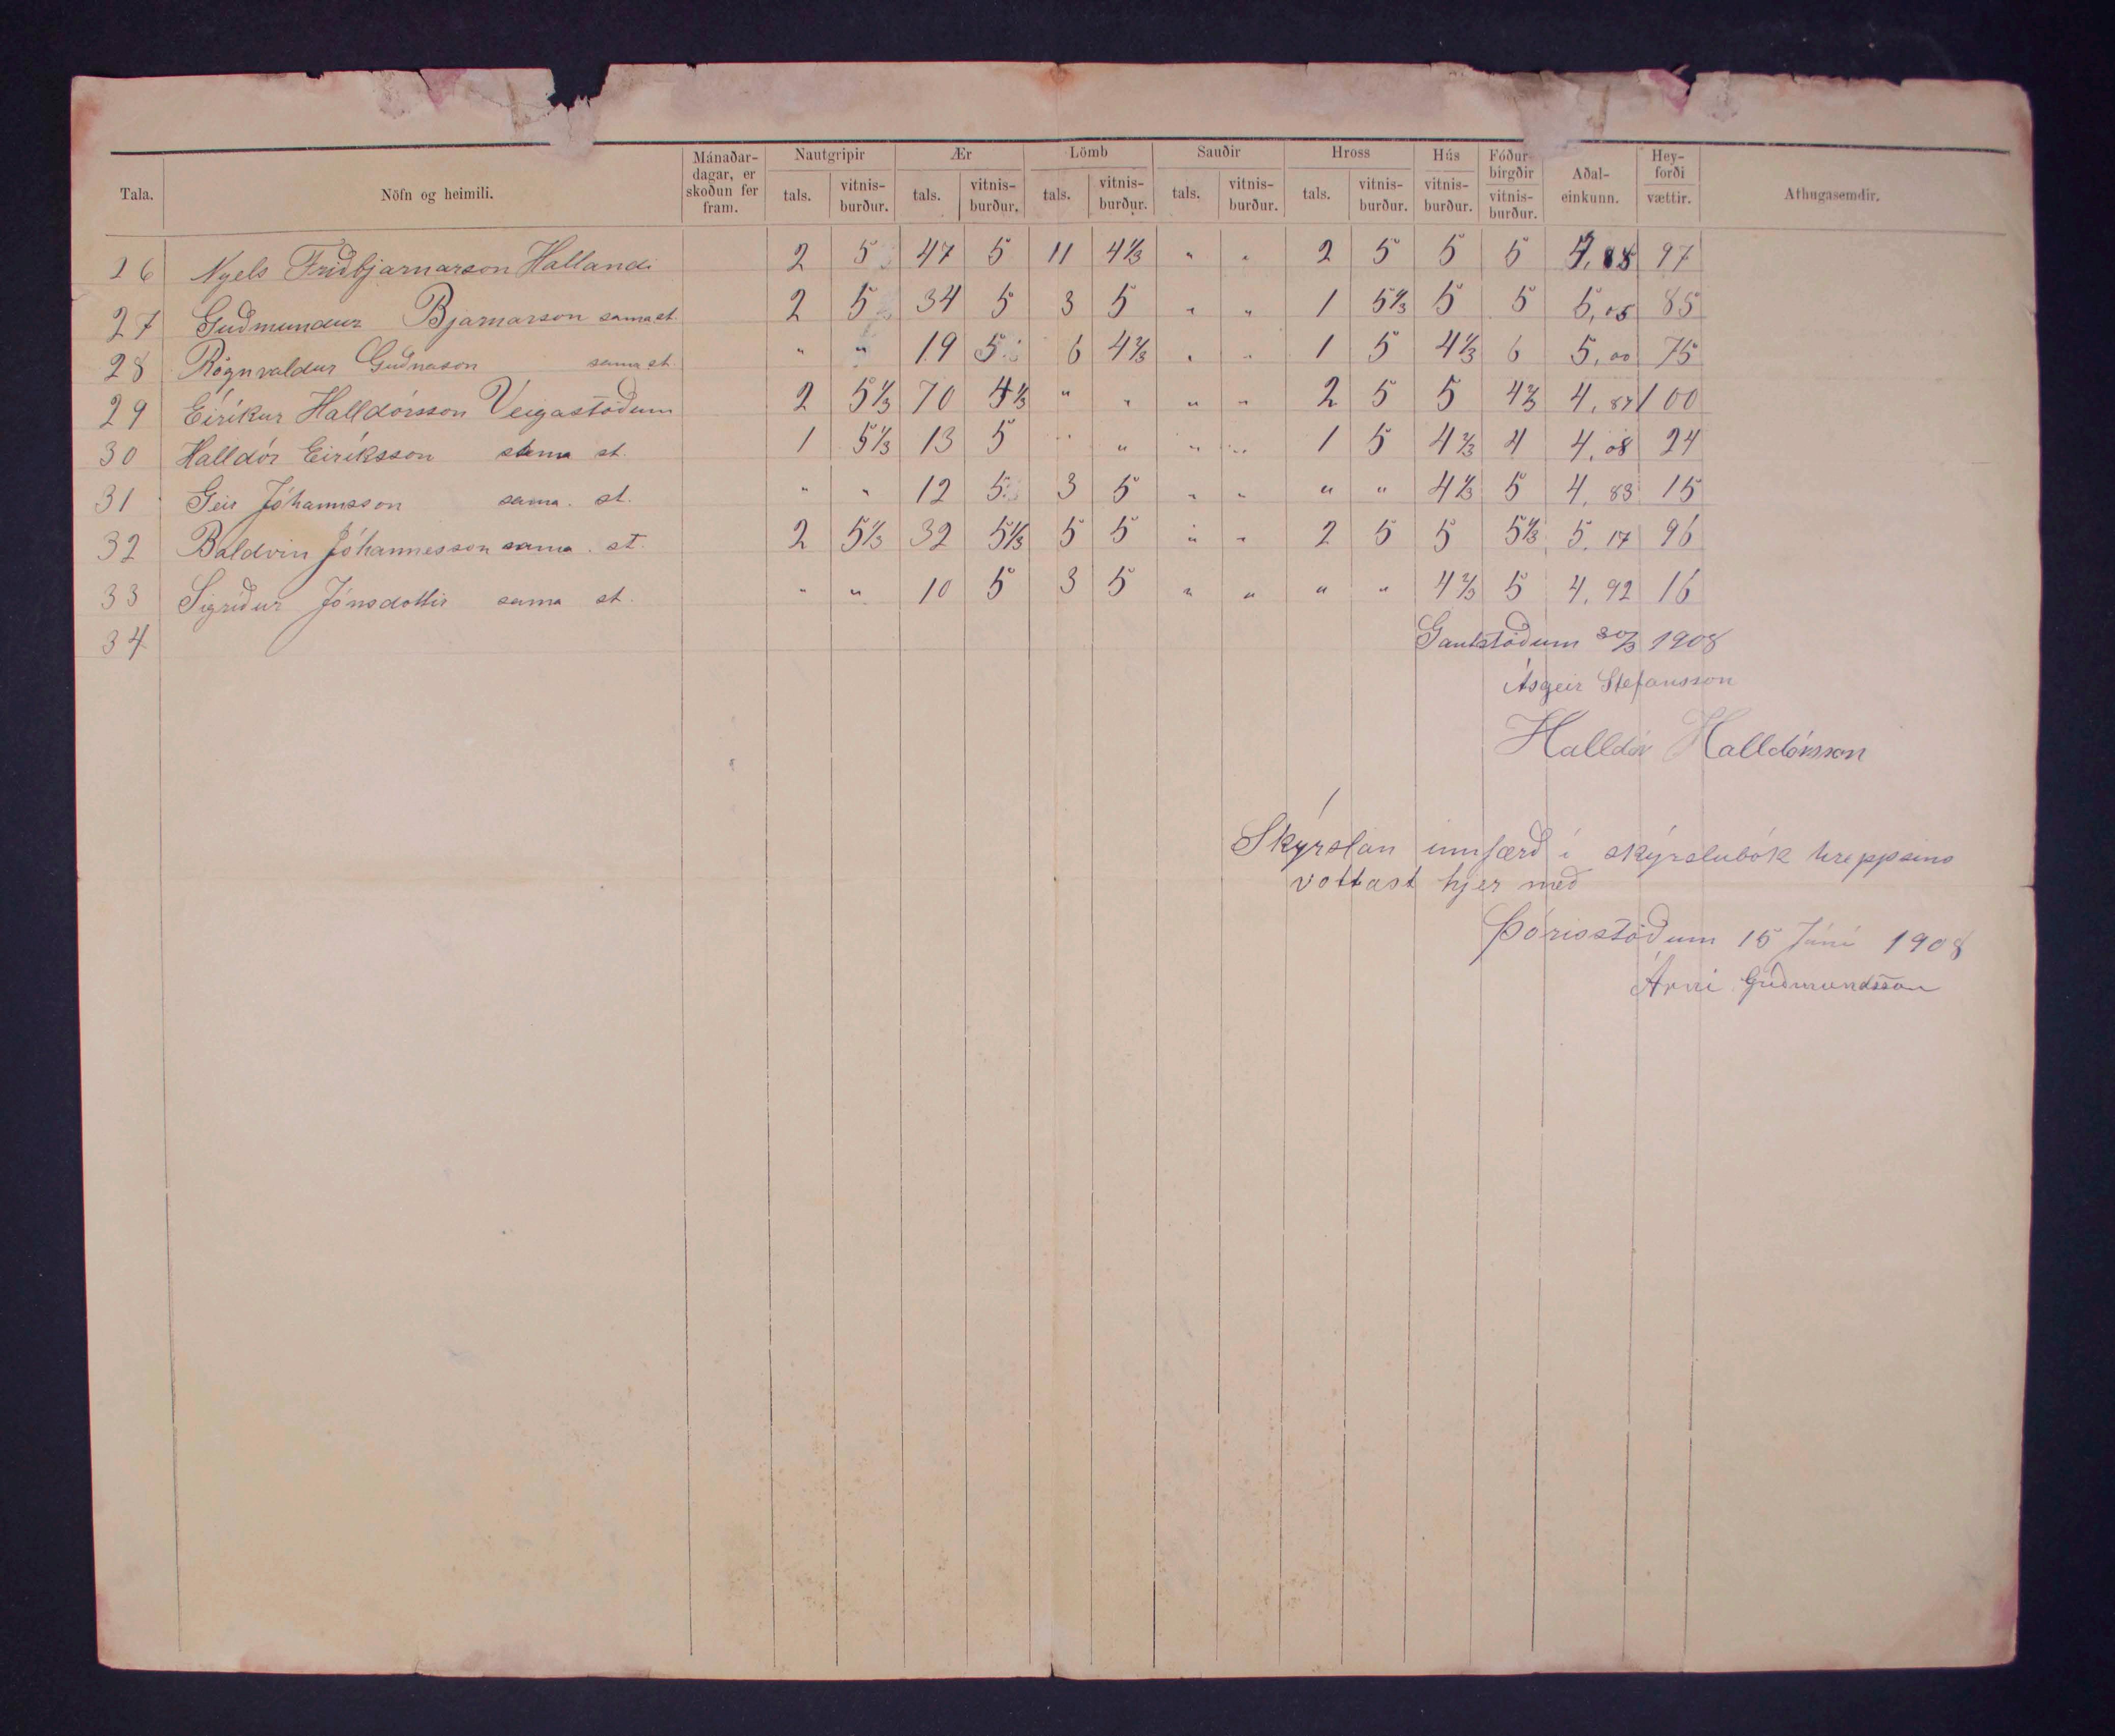 Tala. Nöfn og heimili. Mánaðardagar, er skoðun fer fram. Nautgripir tals. vitnisburður. Ær tals. vitnisburður. Lömb tals. vitnisburður. Sauðir tals. vitnisburður. Hross tals. vitnisburður. Hús vitnisburður. Fóðurbirgðir vitnisburður. Aðaleinkunn. Heyforði vættir. Athugasemdir.
26 Nyels Friðbjarnarson Hallandi 2 5 47 5 11 4⅓ " " 2 5 5 5 4,88 97
27 Guðmundur Bjarnarson sama st. 2 5 34 5 3 5 " " 1 5⅓ 5 5 5,05 85
28 Rögnvaldur Guðnason sama st. " " 19 5 6 4⅔ " " 1 5 4⅓ 6 5,00 75
29 Eiríkur Halldórsson Veigastöðum 2 5⅓ 70 4⅓ " " " " 2 5 5 4⅔ 4,87 100
30 Halldór Eiríksson sama st. 1 5⅓ 13 5 " " " " 1 5 4⅔ 4 4,08 24
31 Geir Jóhannsson sama st. " " 12 5 3 5 " " " " 4⅓ 5 4,83 15
32 Baldvin Jóhannesson sama st. 2 5⅓ 32 5⅓ 5 5 " " 2 5 5 5⅓ 5.17 96
33 Sigríður Jónsdottir sama st. " " 10 5 3 5 " " " " 4⅔ 5 4,92 16
34
Gautstöðum 30/3 1908
Ásgeir Stefansson
Halldór Halldórsson
Skýrslan innfærð í skýrslubók hreppsins
vottast hjer með
Þórisstöðum 15 Júní 1908
Árni Guðmundsson